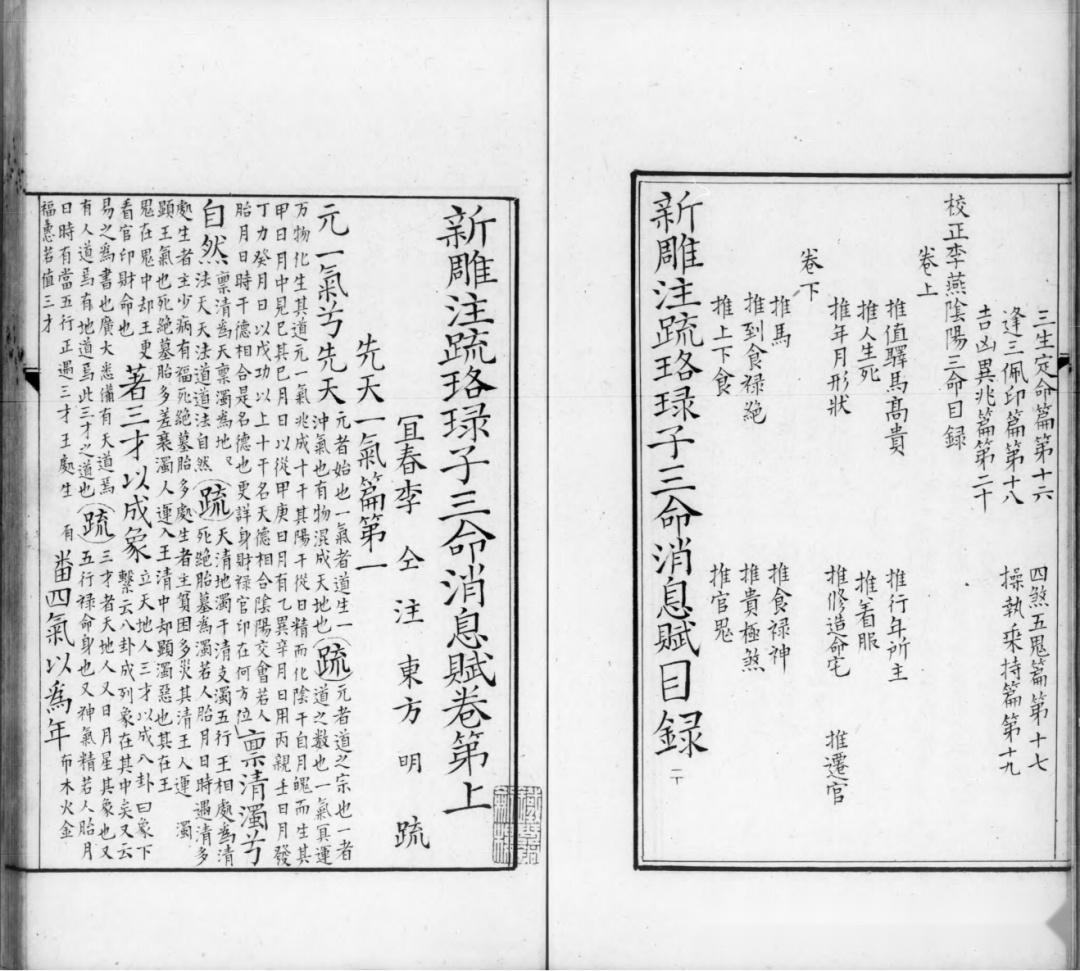 三生定命篇第十六 四煞五鬼篇第十七
逢三佩印篇第十八 操執乘持篇第十九
吉凶異兆篇第二十
校正李燕陰陽三命目録
卷上
推值驛馬髙貴 推行年所主
推人生死 推着服
推年月形狀 推修造命宅 推遷官
卷下
推馬 推食禄神
推到食禄絶 推貴極煞
推上下食 推官鬼
新雕注疏珞琭子三命消息賦目録
新雕注疏珞琭子三命消息賦卷第上
冝春李仝注東方明疏
先天一氣篇第一
元一氣兮先天 元者始也一氣者道生一
沖氣也有物混成天地也 疏 元者道之宗也一者
道之數也一氣冥運
万物化生其道元一氣兆成十干其陽干從日精而化陰干自月魄而生其
甲日月中見巳其巳月日以從甲庚日月有乙異辛月日用丙親壬日月發
丁力癸月日以戊功以上十干名天德相合陰陽交會若人
胎月日時干德相合是名德也更詳身財禄官印在何方位 禀清濁兮
自然 禀清為天禀濁為地又
法天天法道道法自然 疏 天清地濁干清支濁五行王相處為清
死絶胎墓為濁若人胎月日時遇清多
處生者主少病有福死絶墓胎多處生者主貧困多災其清王人運濁
顯王氣也死絶墓胎多差衰濁人運入王清中却顯濁惡也其在王
鬼在鬼中却王更
看官印財命也 著三才以成象 立天地人三才以成八卦曰象下
繫云八卦成列象在其中矣又云
易之為書也廣大悉備有天道焉
有人道焉有地道焉此三才之道也 疏 三才者天地人又日月星其象也又
五行禄命身也又神氣精若人胎月
日時有當五行正遇三才王處生有
福慧若值三才 畨四氣以為年 布木火金